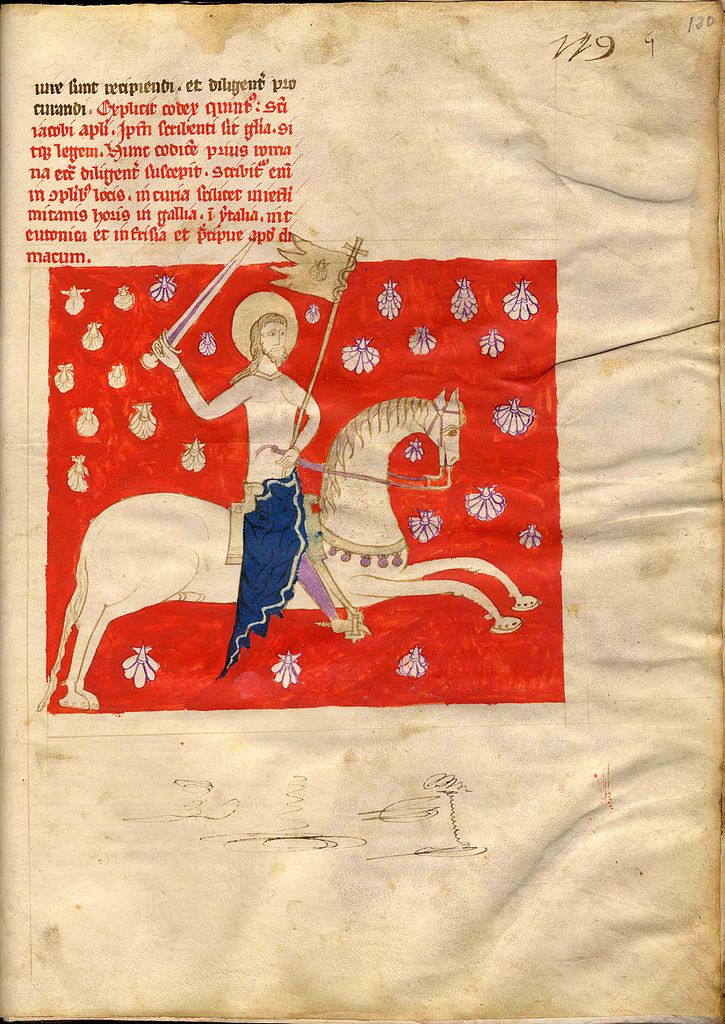 119 9
130
iure sunt recipiendi. et diligent̃ pro
curandi. Explicit codex quint᷒: sc̃i
iacobi apl̃i. Ip̃m scribenti sit gl̃ia. si
tq̃ legenti. Hunc codicẽ prius roma
na eccl̃ diligent̃ suscepit. scribit᷒ eni
in ꝯplib᷒ locis. in curia scilicet in iesli
mitanis horis in gallia. ĩ ytalia. in t
eutonica et in frisia et p̃cipue apd̃ clu
macum.